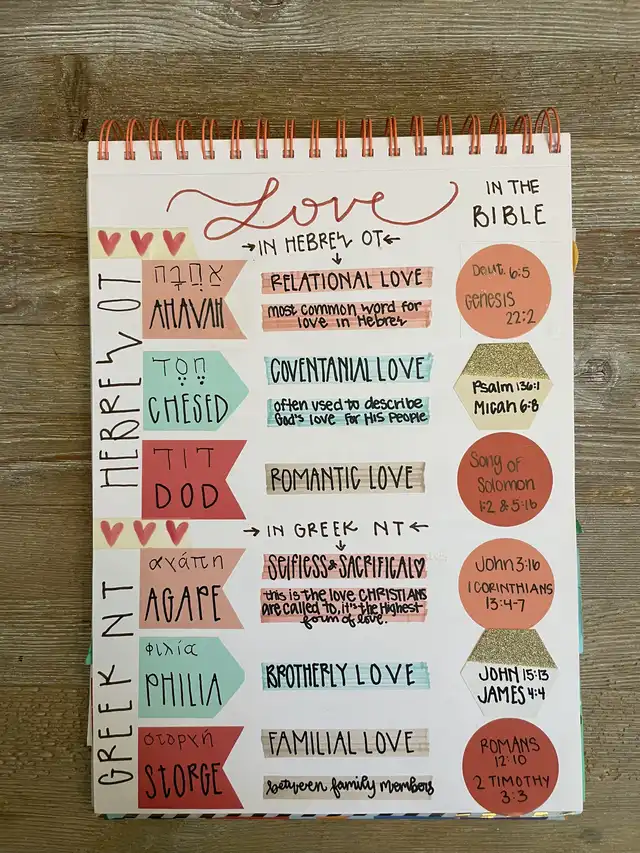 Love
IN THE
BIBLE
→IN HEBREW OT←
HEBREW OT
אַהֲבָה
AHAVAH
RELATIONAL LOVE
most common word for
love in Hebrew
Deut. 6:5
Genesis
22:2
חֶסֶד
CHESED
COVENTANIAL LOVE
often used to describe
God's love for His People
Psalm 136:1
Micah 6:8
דוד
DOD
ROMANTIC LOVE
Song of
Solomon
1:2 & 5:16
→IN GREEK NT←
GREEK NT
αγάπη
AGAPE
SElflESS & SACRIFICAL♡
this is the love CHRISTIANS
are called to, it's the Highest
form of love.
John 3:16
1 CORINTHIANS
13:4-7
φιλία
PHILIA
BROTHERLY LOVE
JOHN 15:13
JAMES 4:4
στοργή
STORGE
FAMILIAL LOVE
between family members
ROMANS
12:10
2 TIMOTHY
3:3